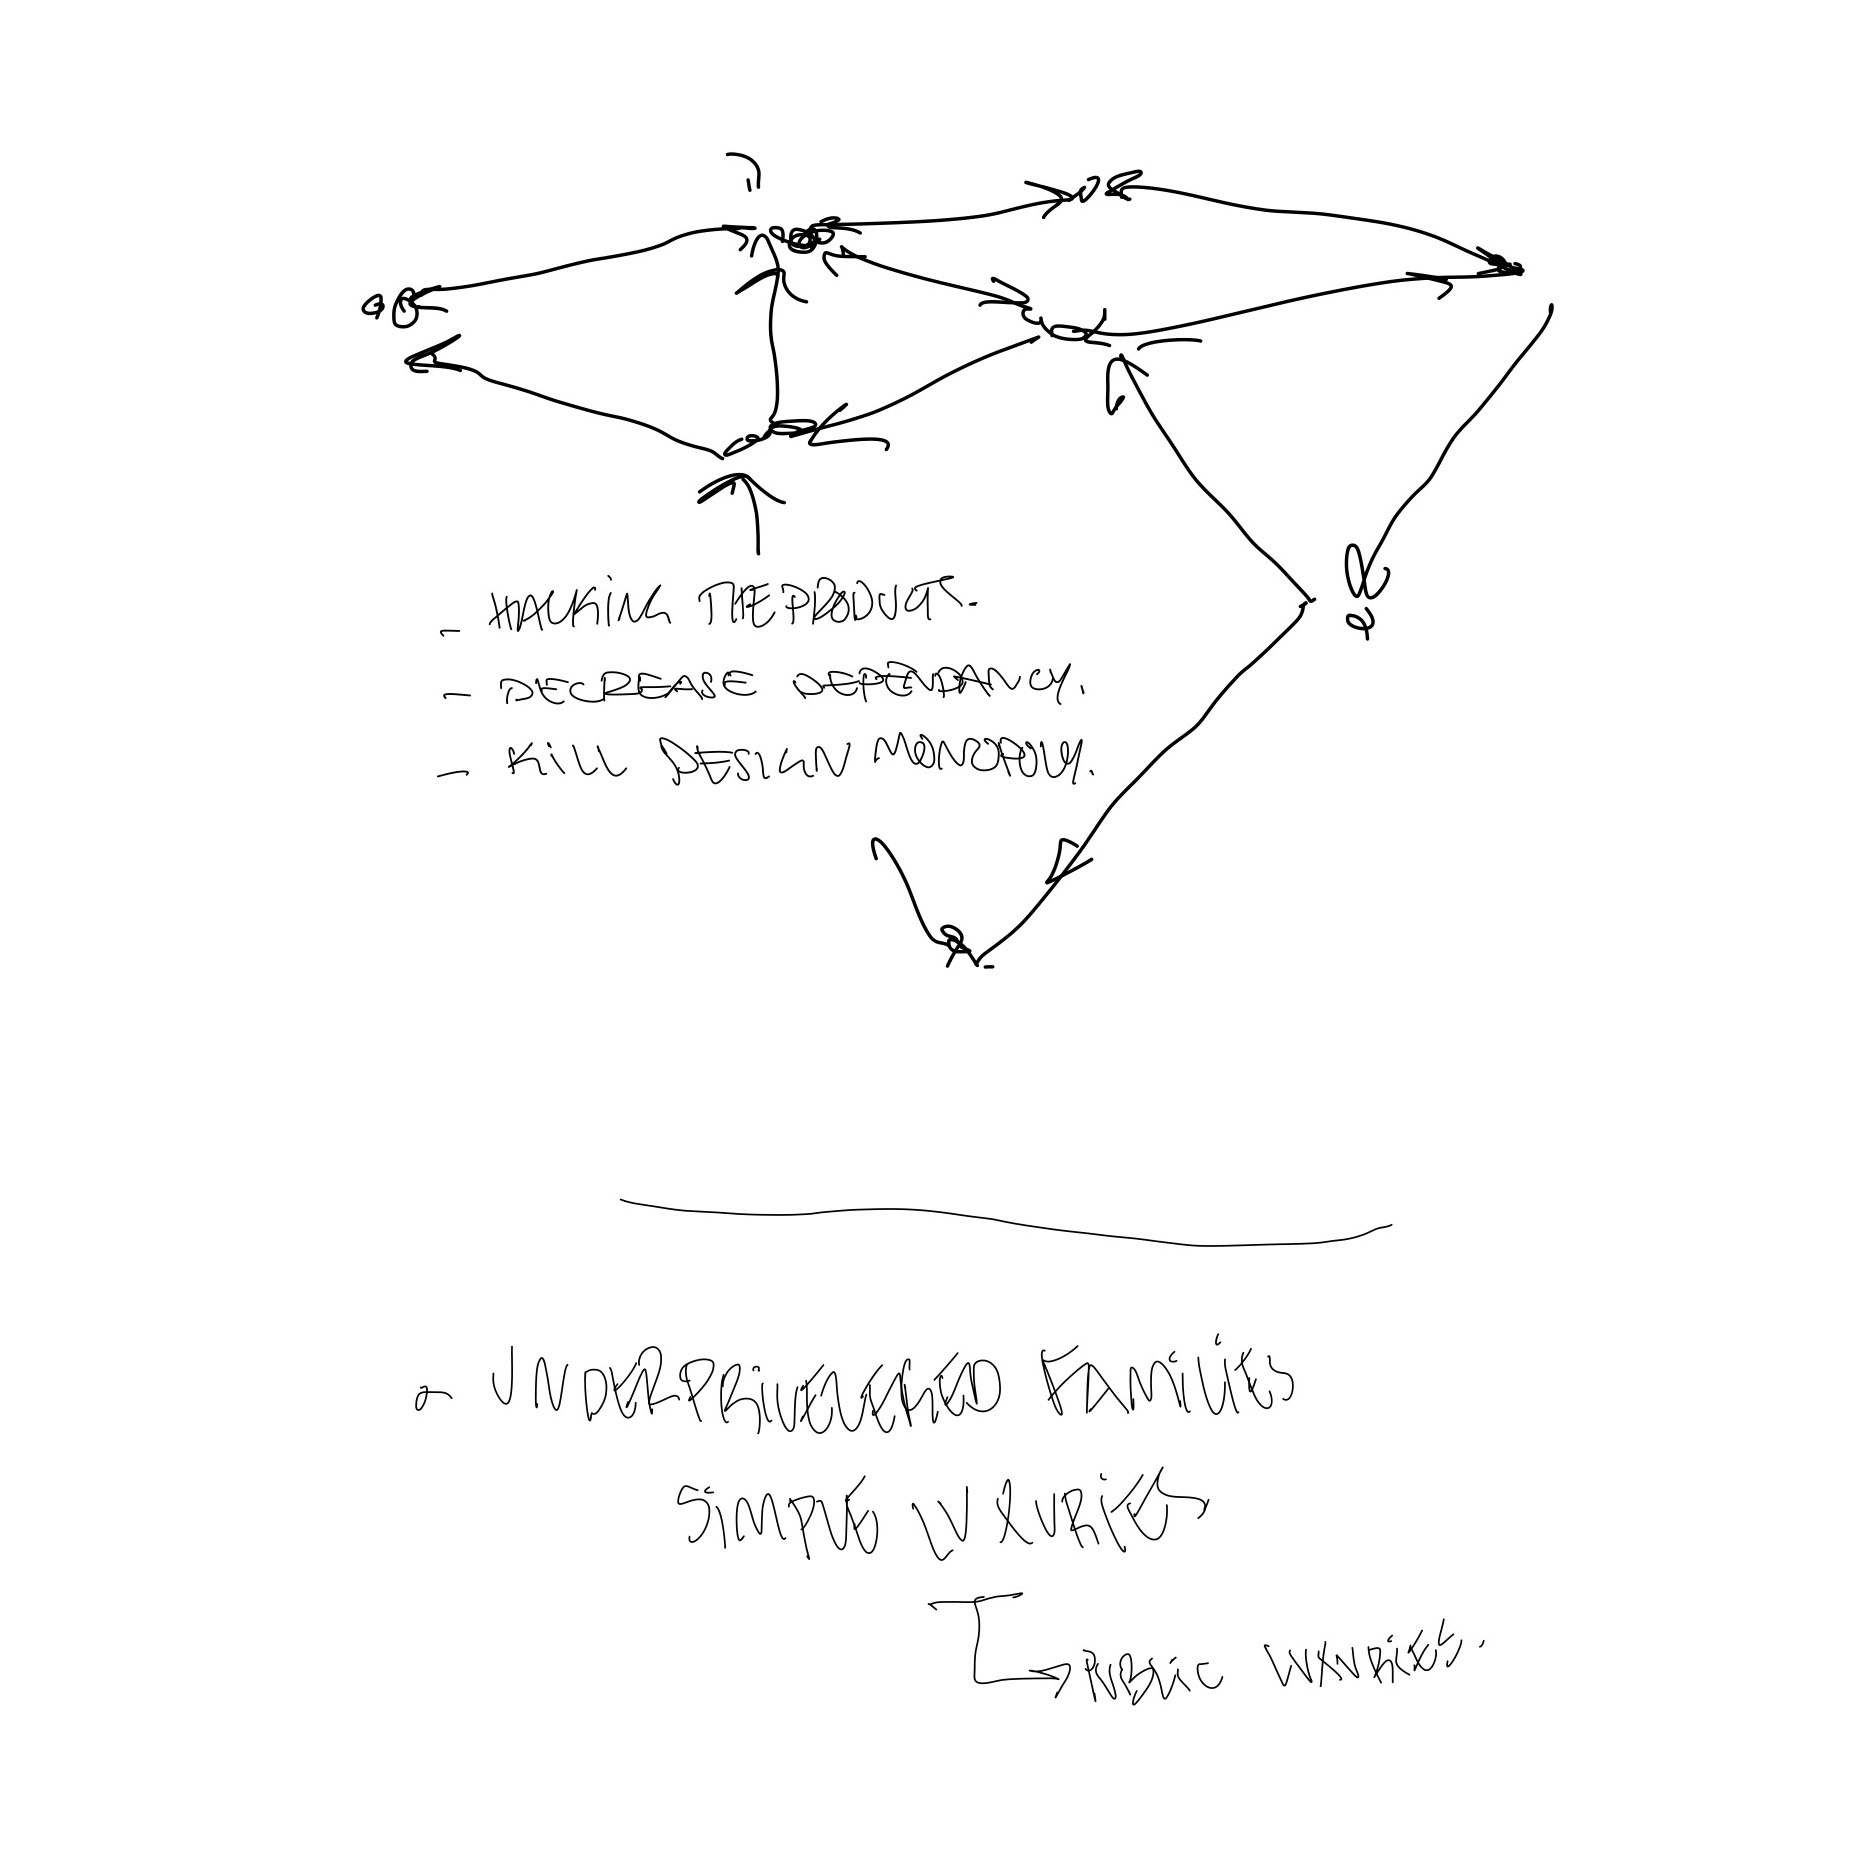 - HACKING THE PRODUCT.
- DECREASE DEPENDANCY.
- KILL DESIGN MONOPOLY.
- UNDERPRIVELEGED FAMILIES
SIMPLE LUXURIES
→ PUBLIC LUXURIES.